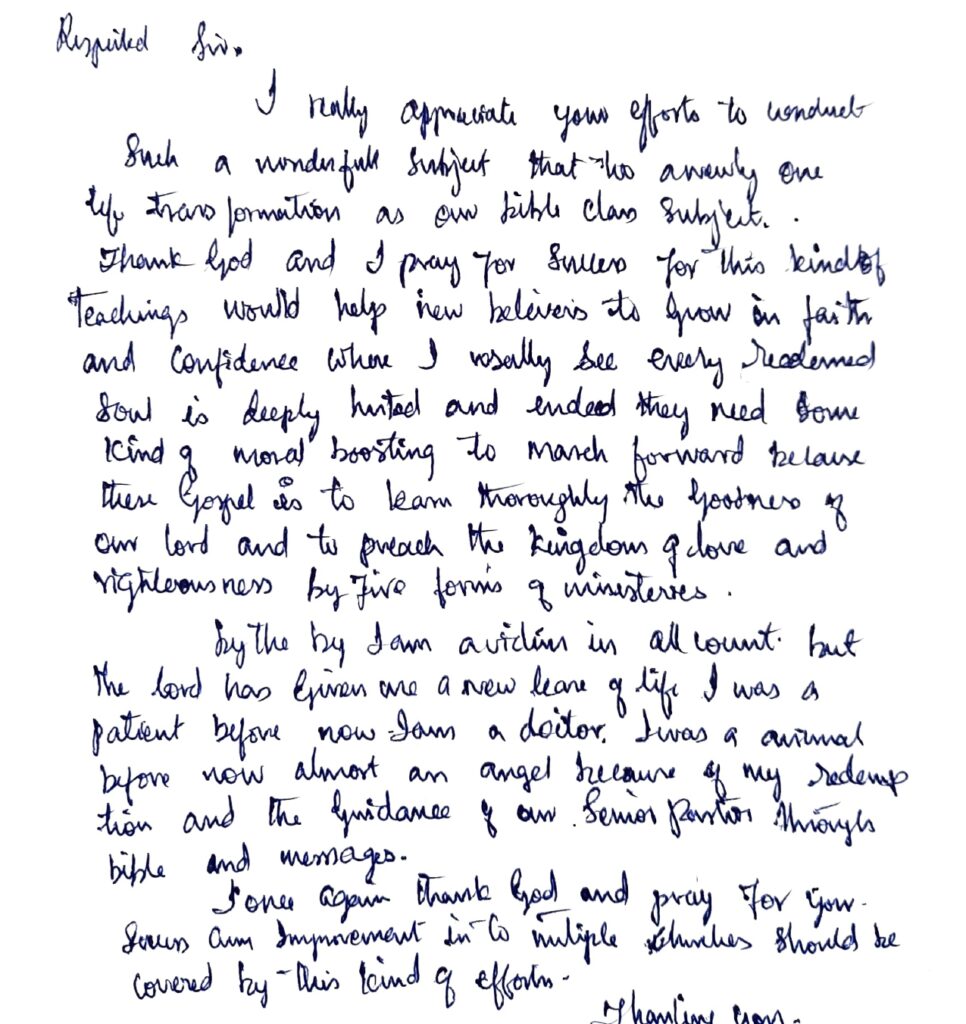 Respected Sir.
I really appreciate your efforts to conduct
Such a wonderfull Subject that too a newly one
life transformation as our bible class Subject. .
Thank God and I pray for Success for this kind of
Teachings would help new believers to Grow in faith
and confidence where I usally see every redeemed
Soul is deeply hurted and endeed they need some
kind of moral boosting to march forward because
these Gospel is to learn thoroughly the Goodness of
our lord and to preach the kingdom of love and
righteousness by Five forms of ministeries .
by the by I am a victim in all count. but
the lord has Given me a new leare of life I was a
patient before now I am a doctor. I was a animal
before now almost an angel because of my redemp
tion and the Guidance of our Senior Pastor through
bible and messages.
I once again thank God and pray for your
Success Improvement in to multiple churches should be
covered by this kind of efforts.
Thanking you.